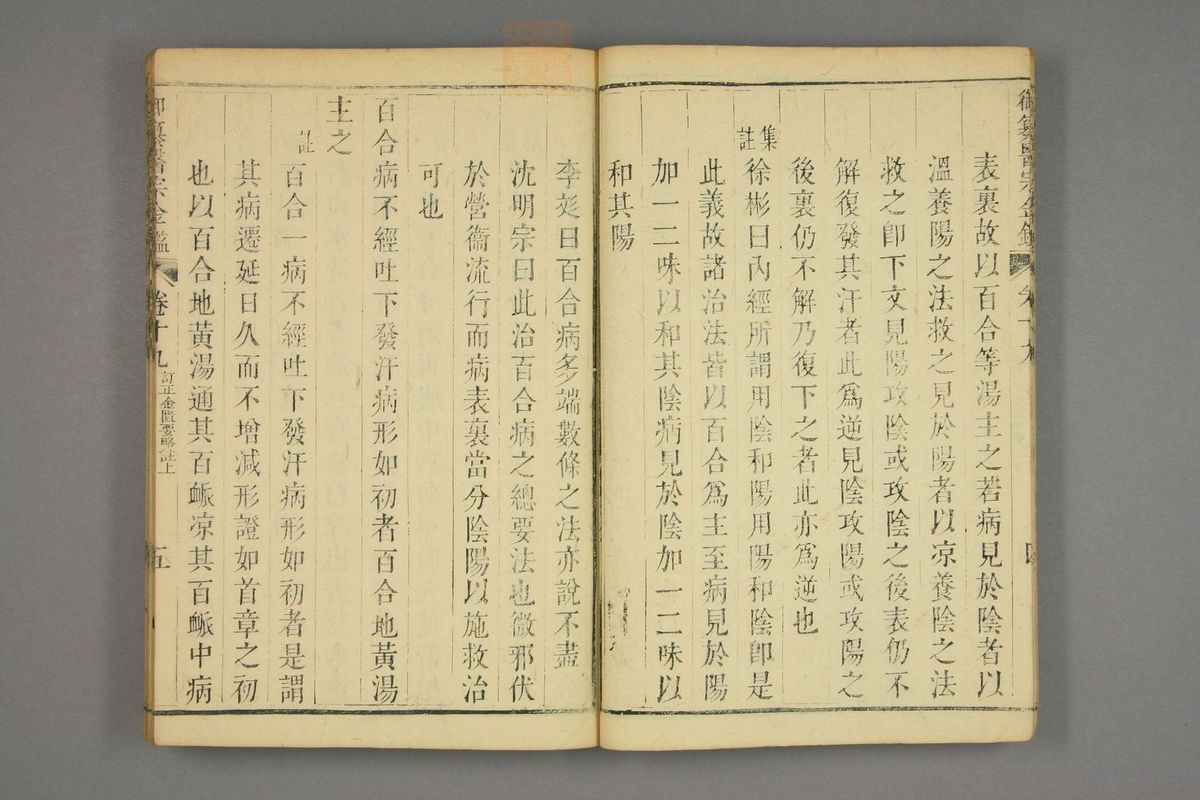 御纂醫宗金鑑
卷十九
四
表裏故以百合等湯主之若病見於陰者以
溫養陽之法救之見於陽者以凉養陰之法
救之卽下文見陽攻陰或攻陰之後表仍不
解復發其汗者此爲逆見陰攻陽或攻陽之
後裏仍不解乃復下之者此亦爲逆也
集註
徐彬曰內經所謂用陰和陽用陽和陰卽是
此義故諸治法皆以百合爲主至病見於陽
加一二味以和其陰病見於陰加一二味以
和其陽
李彣曰百合病多端數條之法亦說不盡
沈明宗曰此治百合病之總要法也微邪伏
於營衞流行而病表裏當分陰陽以施救治
可也
百合病不經吐下發汗病形如初者百合地黃湯
主之
註
百合一病不經吐下發汗病形如初者是謂
其病遷延日久而不增減形證如首章之初
也以百合地黃湯通其百脈凉其百脈中病
御纂醫宗金鑑
卷十九
訂正金匱要略註上
五